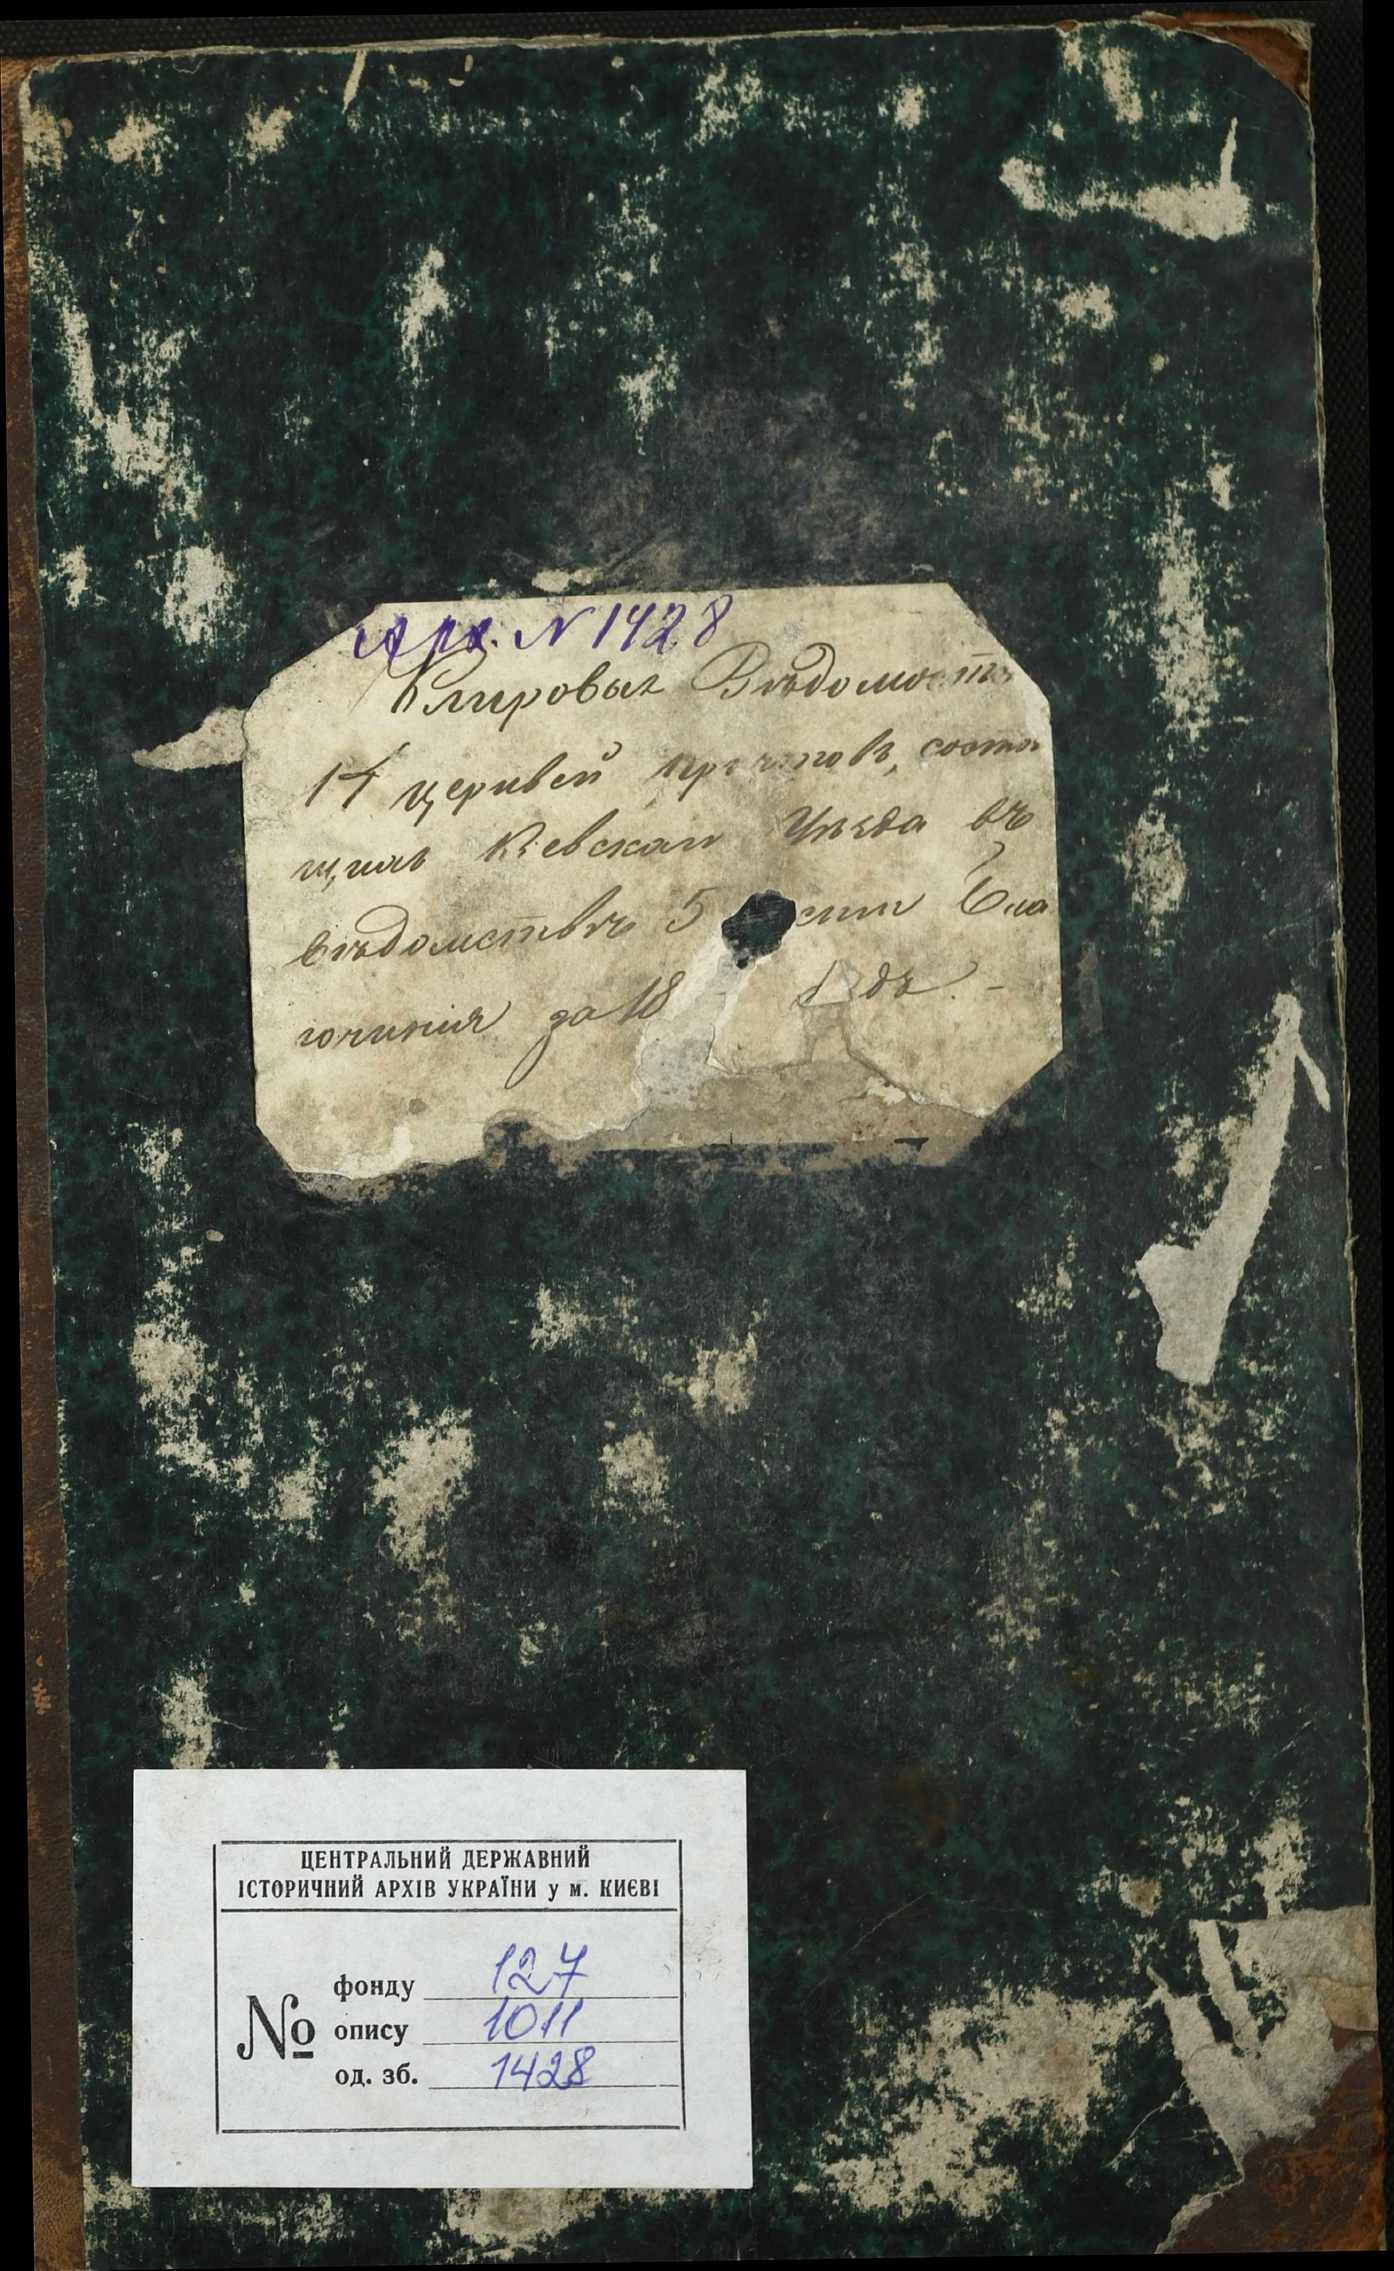 Арх. N 1428
Клировыя Вѣдомости
14 церквей причтовъ, состоя
щихъ Кіевскаго Уѣзда въ
вѣдомствѣ 5 Бла
гочинія за 18 дъ. -
ЦЕНТРАЛЬНИЙ ДЕРЖАВНИЙ
ІСТОРИЧНИЙ АРХІВ УКРАЇНИ у м. КИЄВІ
№
фонду 127
опису 1011
од. зб. 1428